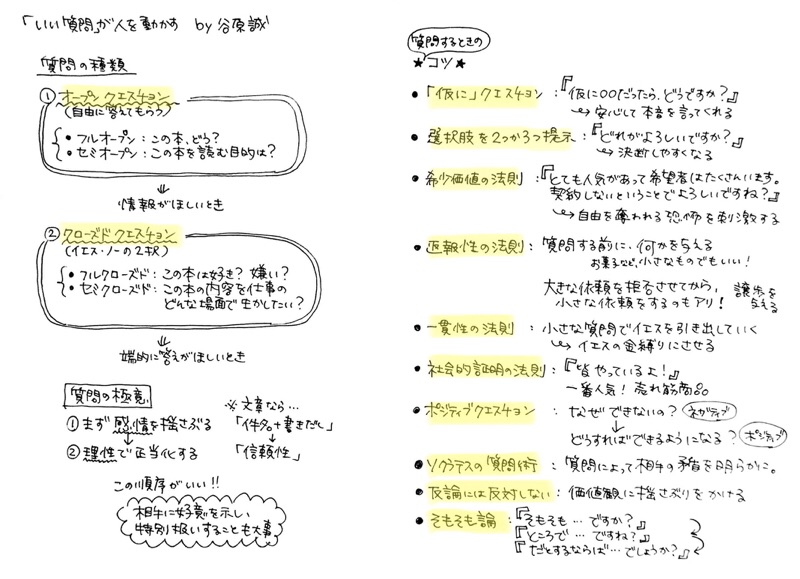 「いい質問」が人を動かす by 谷原誠
質問の種類
① オープンクエスチョン
(自由に答えてもらう)
• フルオープン：この本、どう？
• セミオープン：この本を読む目的は？
情報がほしいとき
② クローズドクエスチョン
(イエス・ノーの2択)
• フルクローズド：この本は好き？ 嫌い？
• セミクローズド：この本の内容を仕事の
どんな場面で生かしたい？
端的に答えがほしいとき
質問の極意
①まず感情を揺さぶる
②理性で正当化する
※ 文章なら…
「件名+書きだし」
「信頼性」
この順序がいい!!
相手に好意を示し、
特別扱いすることも大事
質問するときの
★コツ★
• 「仮に」クエスチョン：『仮に○○だったら、どうですか？』
安心して本音を言ってくれる
• 選択肢を2つか3つ提示：『どれがよろしいですか？』
決断しやすくなる
• 希少価値の法則：『とても人気があって希望者はたくさんいます。
契約しないということでよろしいですね？』
自由を奪われる恐怖を刺激する
• 返報性の法則：質問する前に、何かを与える
お菓子など、小さなものでもいい！
大きな依頼を拒否させてから、
小さな依頼をするのもアリ！
譲歩を
与える
• 一貫性の法則：小さな質問でイエスを引き出していく
イエスの金縛りにさせる
• 社会的証明の法則：『皆やっているよ！』
一番人気！ 売れ筋商品
• ポジティブクエスチョン：なぜできないの？ ネガティブ
どうすればできるようになる？ ポジティブ
• ソクラテスの質問術：質問によって相手の矛盾を明らかに。
• 反論には反対しない：価値観に揺さぶりをかける
• そもそも論：『そもそも…ですか？』
『ところで…ですね？』
『だとするならば…でしょうか？』